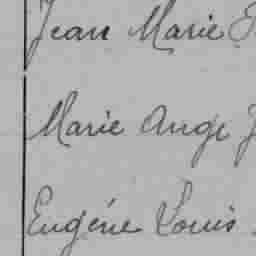 Jean Marie
Marie Ange J
Eugène Louis